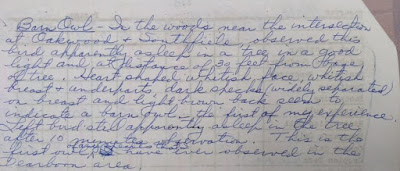 Barn Owl - In the woods near the intersection
at Oakwood & Southfield observed this
bird apparently asleep in a tree in a good
light and at distances of 39 feet from base
of tree. Heart shaped whitish face, whitish
breast & underparts, dark specks (widely separated)
on breast and light brown back seem to
indicate a barn owl - the first of my experience.
Left bird still apparently asleep in the tree
after 10 minutes observation. This is the
first owl I have ever observed in the
Dearborn area.